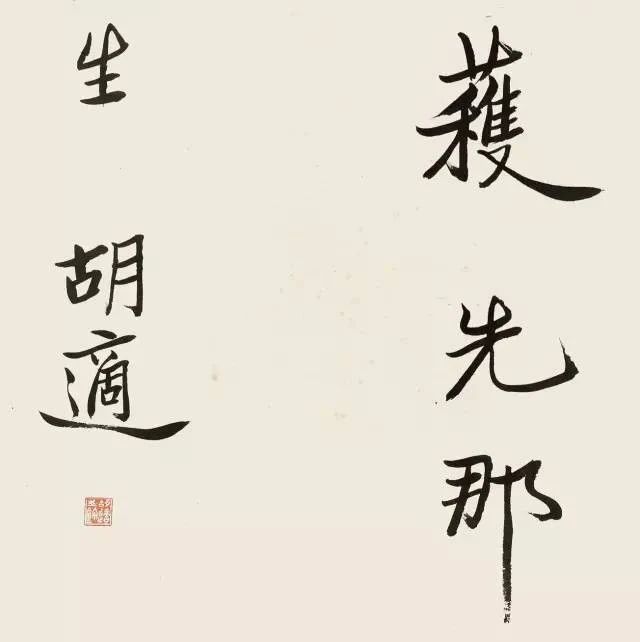 穫先那
生 胡適